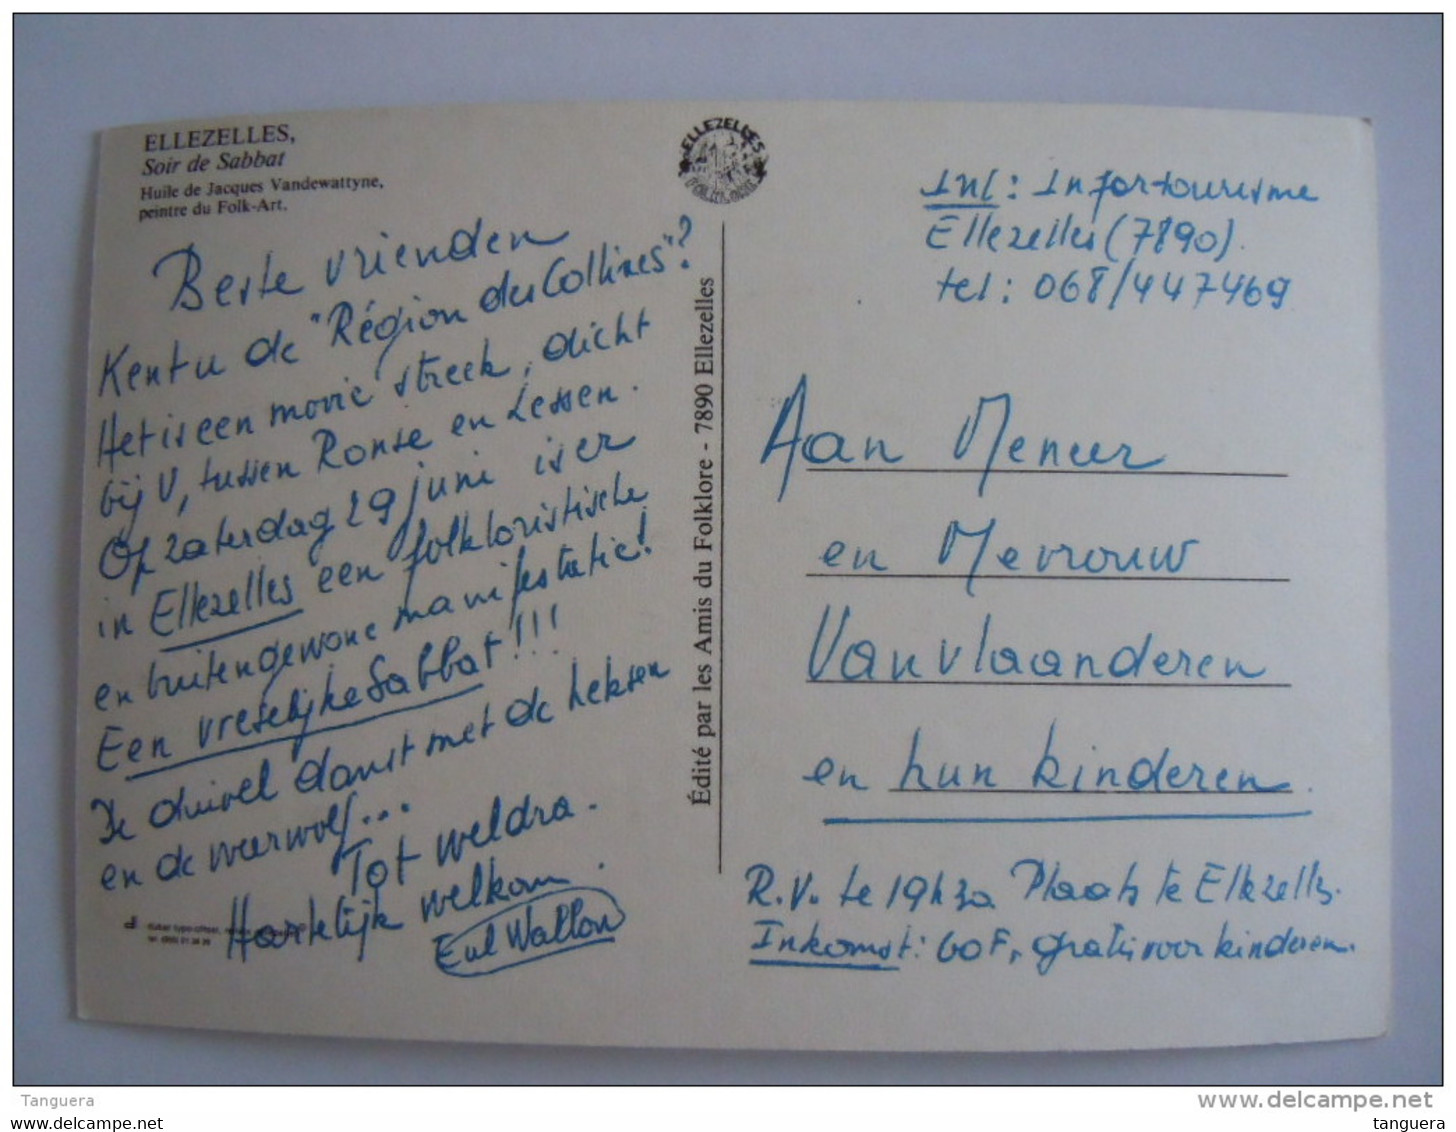 ELLEZELLES,
Soir de Sabbat
Huile de Jacques Vandewattyne,
peintre du Folk-Art.
Beste vrienden
Kent u de "Région des Collines"?
Het is een mooie streek, dicht
bij U, tussen Ronse en Lessen.
Op zaterdag 29 juni is er
in Ellezelles een folkloristische
en buitengewone manifestatie!
Een vreselijke Sabbat!!!
De duivel danst met de heksen
en de weerwolf...
Tot weldra.
Hartelijk welkom.
Eul Wallon
ELLEZELLES
FOLKLORE
Édité par les Amis du Folklore - 7890 Ellezelles
Inl: Infor-tourisme
Ellezelles (7890).
tel: 068/447469
Aan Meneer
en Mevrouw
Vanvlaanderen
en hun kinderen.
R.V. te 19h30 Plaats te Ellezelles.
Inkomst: 60F, gratis voor kinderen.
Tanguera
www.delcampe.net
tanguera
tanguera